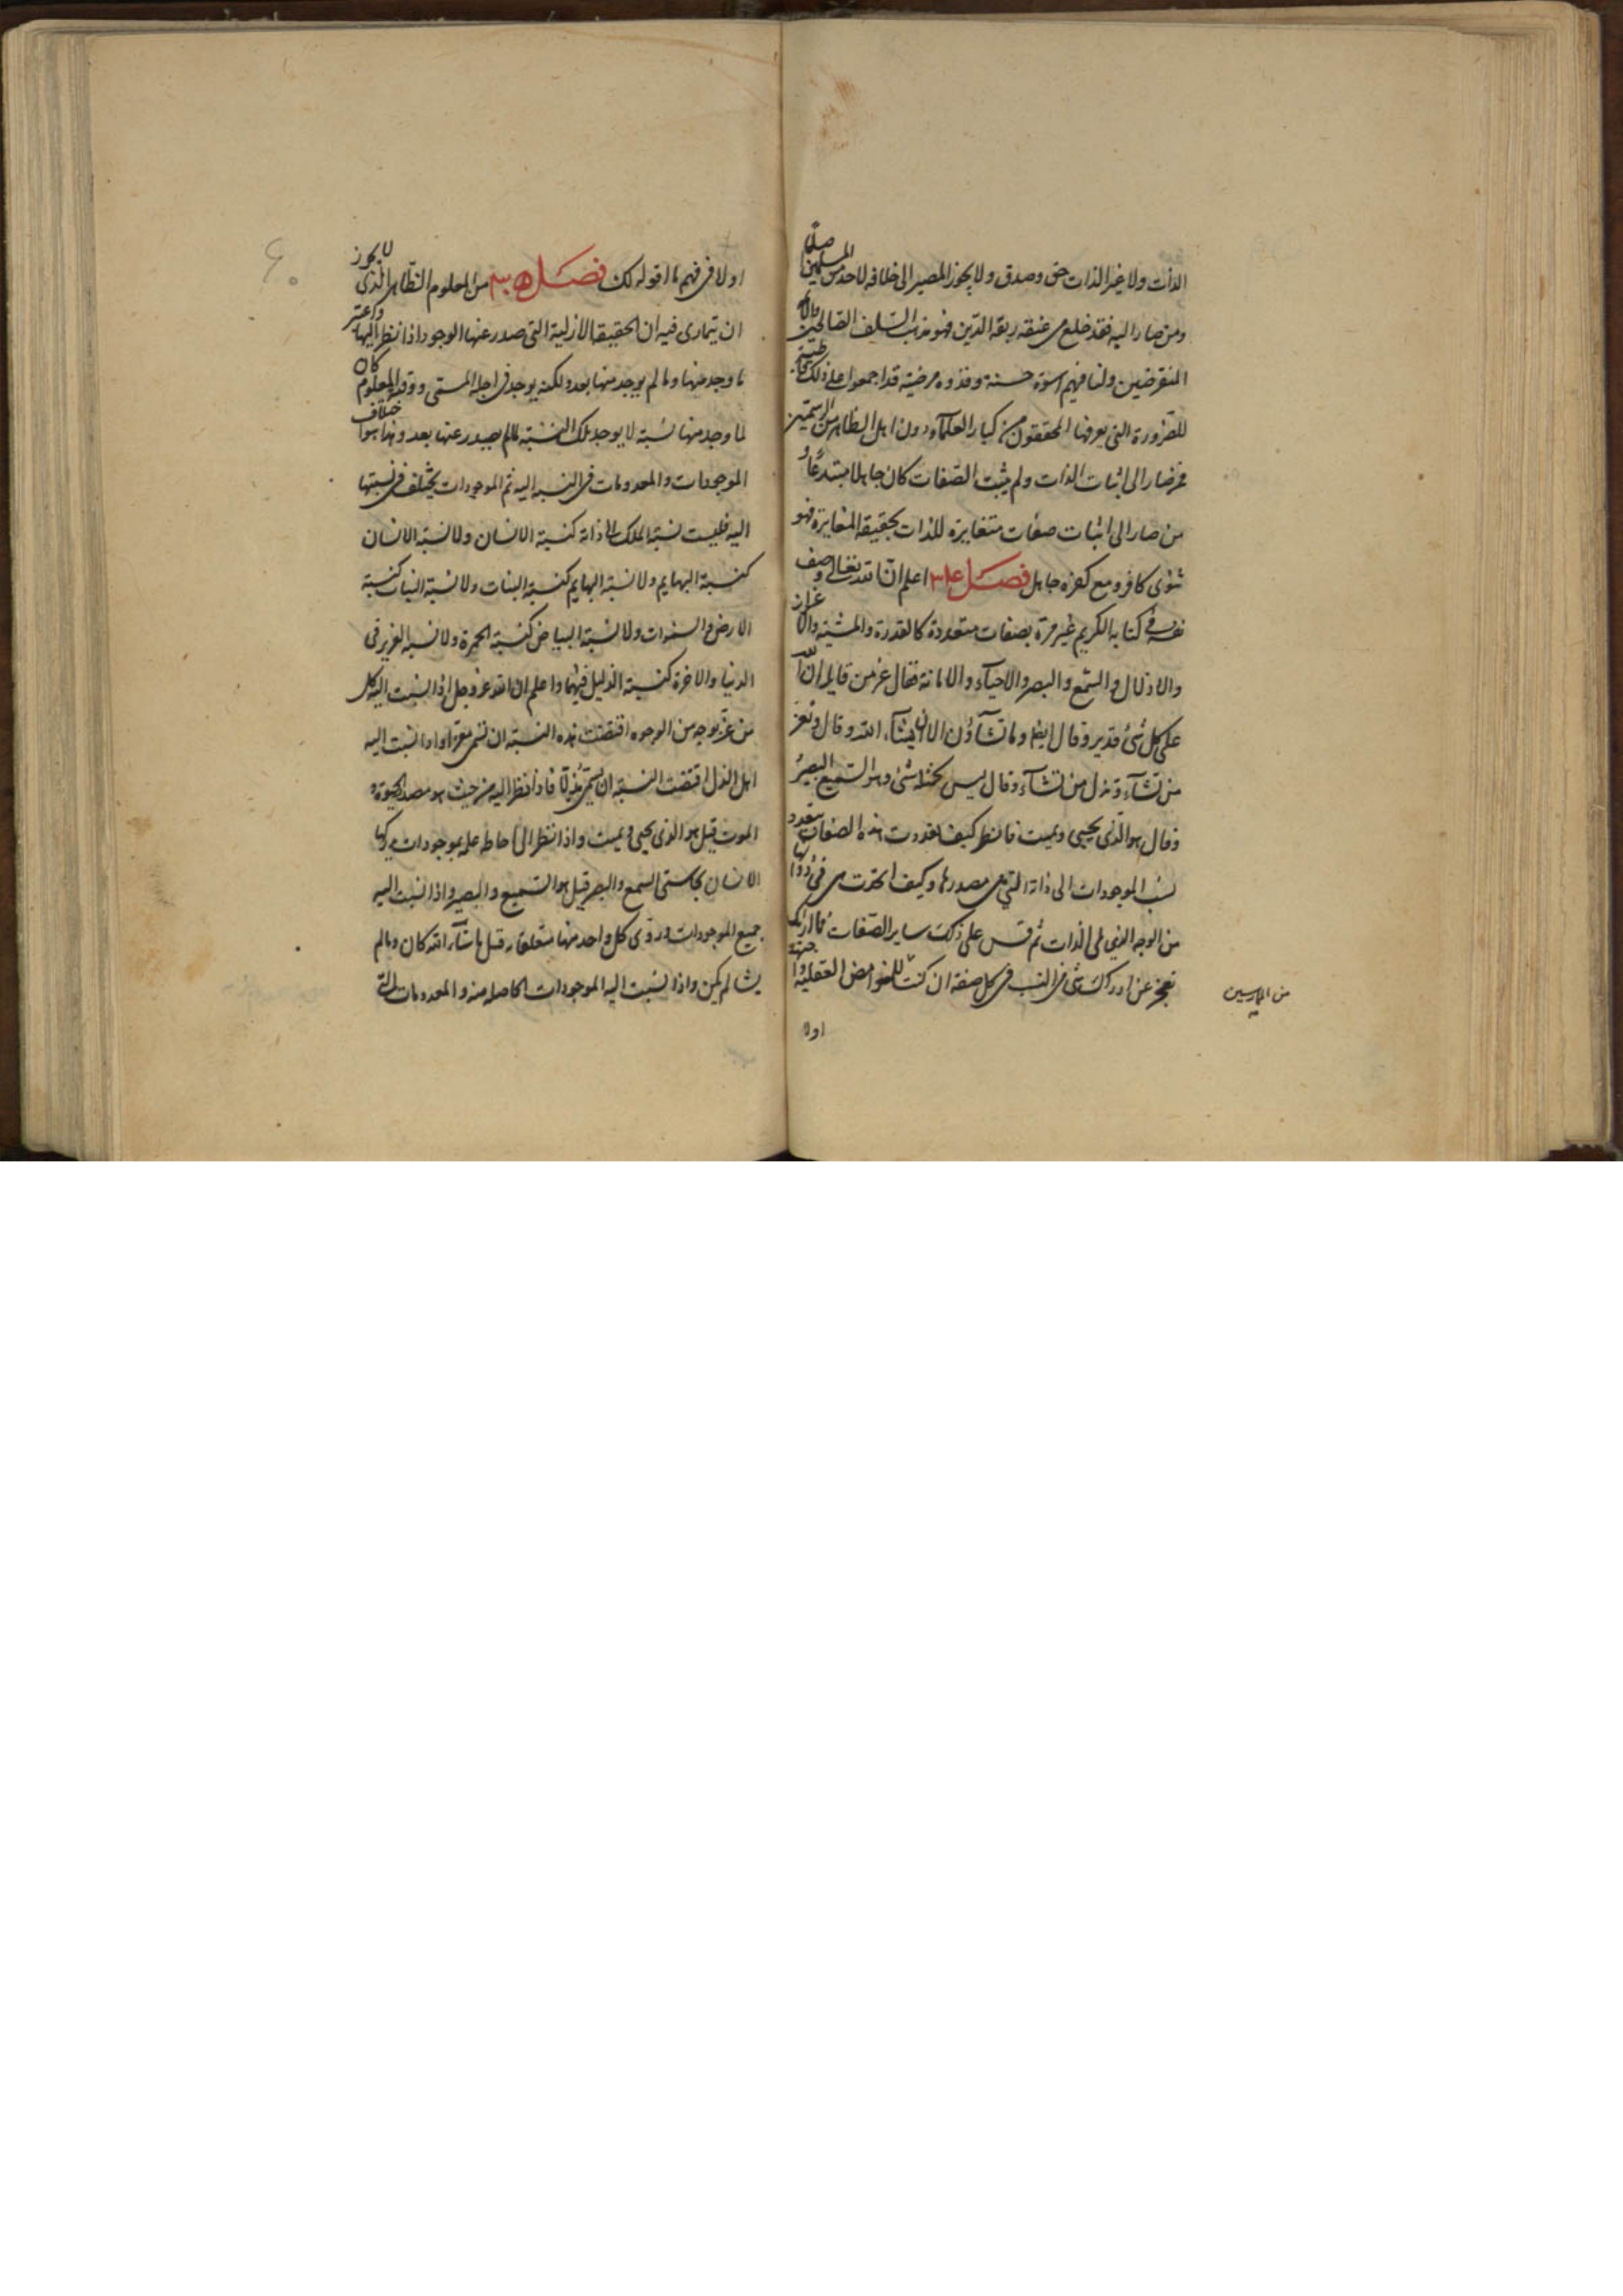 الذات ولا غير الذات حق وصدق ولا يجوز المصير الى خلافه لاحد من المسلمين اصلا
ومن صار اليه فقد خلع من عنقه ربقة الدين فهو مذهب السلف الصالحين
المنقرضين ولنا فيهم اسوة حسنة وقدوه مرضية قد اجمعوا على ذلك قاطبة
للضرورة التي يعرفها المحققون من كبار العلماء دون اهل الظاهر من المترسمين
فمن صار الى اثبات الذات ولم يثبت الصفات كان جاهلا مبتدعا و
من صار الى اثبات صفات متغايرة للذات بحقيقة المغايرة فهو
ثنوى كافر ومع كفره جاهل فصل اعلم ان الله تعالى وصف
نفسه فى كتابه الكريم غير مرة بصفات متعددة كالقدرة والمشية والاعزاز
والاذلال والسمع والبصر والاحياء والاماتة فقال عز من قايل ان الله
على كل شئ قدير وقال ايضا وما تشآؤن الا ان يشآء الله وقال وتعز
من تشآء وتذل من تشآء وقال ليس كمثله شئ وهو السميع البصير
وقال هو الذى يحيى ويميت فانظر كيف تعددت هذه الصفات بتعدد
نسب الموجودات الى ذاته التي هى مصدرها وكيف اتحدت هى فى ذواتها
من الوجه الذي يلى الذات ثم قس على ذلك ساير الصفات فما اراك
تعجز عن ادراك شئ من النسب فى كل صفة ان كنت للغوامض العقلية
من الممارسين
اولا
اولا فى فهم ما اقوله لك فصل من المعلوم الظاهر الذى لا يجوز
ان يتمارى فيه ان الحقيقة الازلية التى صدر عنها الوجود اذا نظر اليها واعتبر
ما وجد منها وما لم يوجد منها بعد ولكنه يوجد فى اجله المسمى ووقته المعلوم كان
لما وجد منها نسبة لا يوجد تلك النسبة لما لم يصدر عنها بعد وهذا هو اختلاف
الموجودات والمعدومات فى النسبة اليه ثم الموجودات يختلف فى نسبتها
اليه فليست نسبة الملك الى ذاته كنسبة الانسان ولا نسبة الانسان
كنسبة البهايم ولا نسبة البهايم كنسبة النبات ولا نسبة النبات كنسبة
الارض والسموات ولا نسبة البياض كنسبة الحمرة ولا نسبة العزيز فى
الدنيا والاخرة كنسبة الذليل فيهما واعلم ان الله عز وجل اذا نسبت اليه كل
من عز بوجه من الوجوه اقتضت هذه النسبة ان تسمى معزا واذا نسبت اليه
اهل الذل اقتضت النسبة ان يسمى مذلا فاذا نظر اليه من حيث هو مصدر الحيوة و
الموت قيل هو الذى يحيى ويميت واذا نظر الى احاطة علمه بموجودات يدركها
الانسان بحاستى السمع والبصر قيل هو السميع والبصير واذا نسبت اليه
جميع الموجودات ورؤى كل واحد منها متعلقا به قيل ما شآء الله كان وما لم
يشا لم يكن واذا نسبت اليه الموجودات الحاصلة منه والمعدومات التى